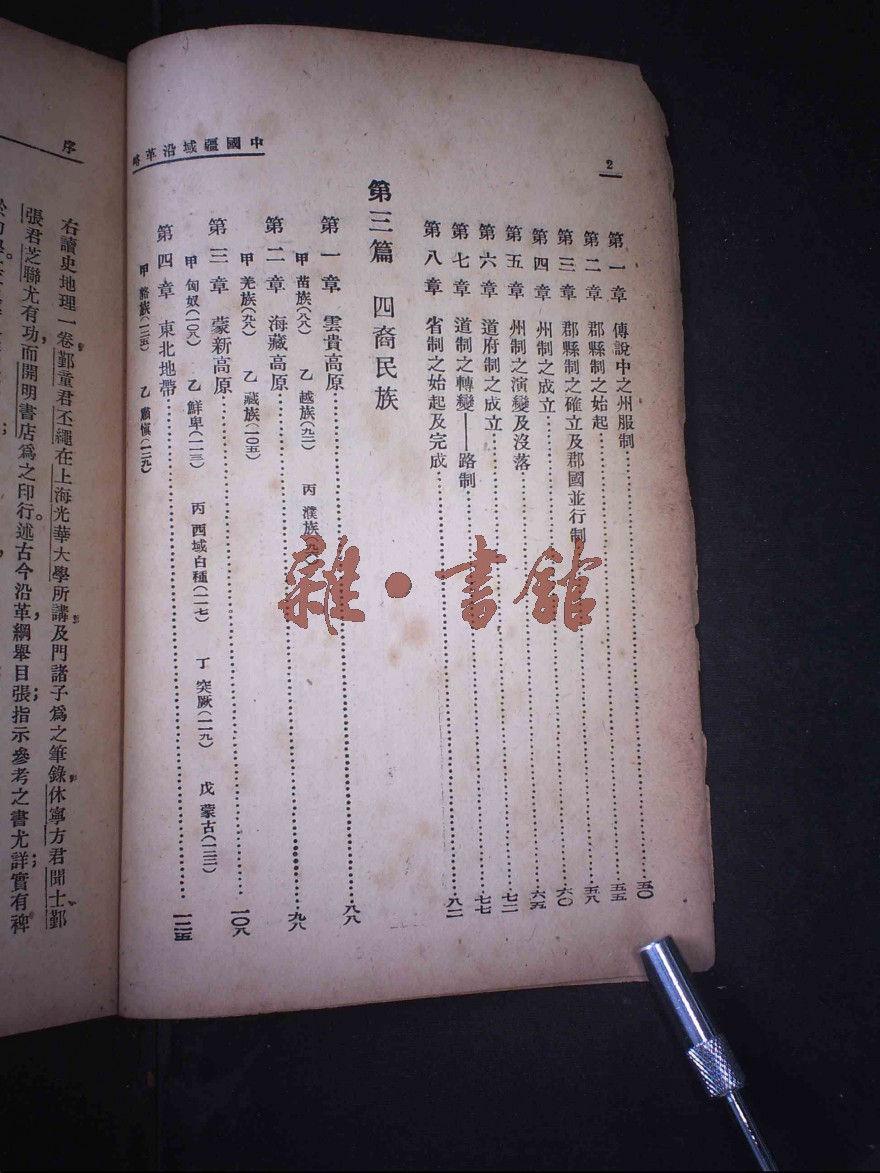 2
中國疆域沿革略
第一章 傳說中之州服制……五〇
第二章 郡縣制之始起……五五
第三章 郡縣制之確立及郡國並行制……五八
第四章 州制之成立……六〇
第五章 州制之演變及沒落……六五
第六章 道府制之成立……七二
第七章 道制之轉變——路制……七七
第八章 省制之始起及完成……八二
第三篇 四裔民族
第一章 雲貴高原……八八
甲 苗族(八八) 乙 越族(九二) 丙 濮族
第二章 海藏高原……九八
甲 羌族(九八) 乙 藏族(一〇五)
第三章 蒙新高原……一〇八
甲 匈奴(一〇八) 乙 鮮卑(一一三) 丙 西域白種(一一七) 丁 突厥(一一九) 戊 蒙古(一二二)
第四章 東北地帶……一二五
甲 貉族(一二五) 乙 肅慎(一二九)
序
右讀史地理一卷鄞童君丕繩在上海光華大學所講及門諸子爲之筆錄休寧方君聞士鄞
張君芝聯尤有功而開明書店爲之印行。述古今沿革,綱舉目張;指示參考之書,尤詳實有裨
雜·書館